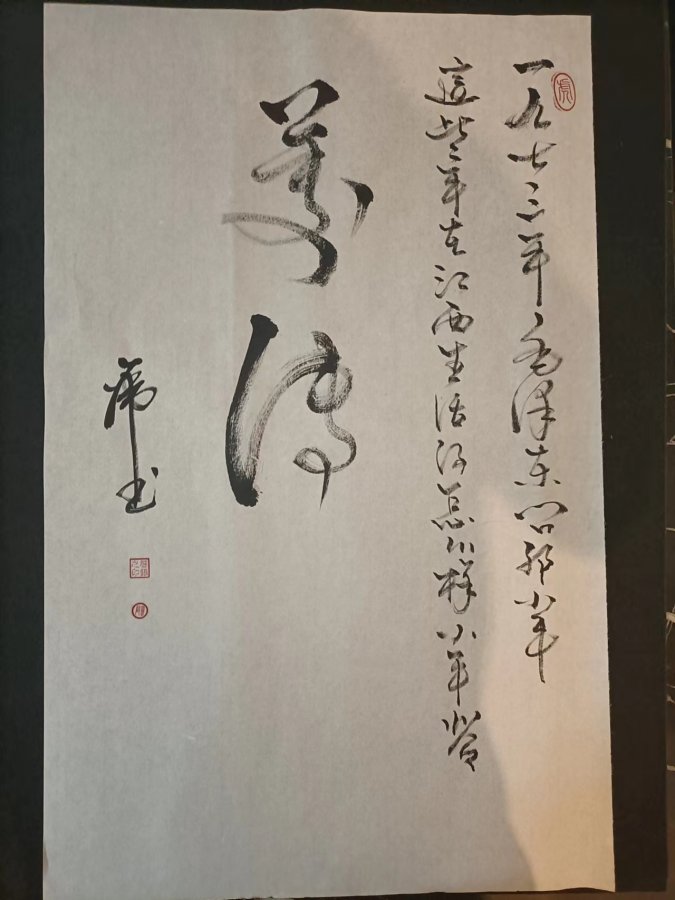 一九七三年毛泽东问邓小平
這些年在江西生活得怎么样小平答
等待